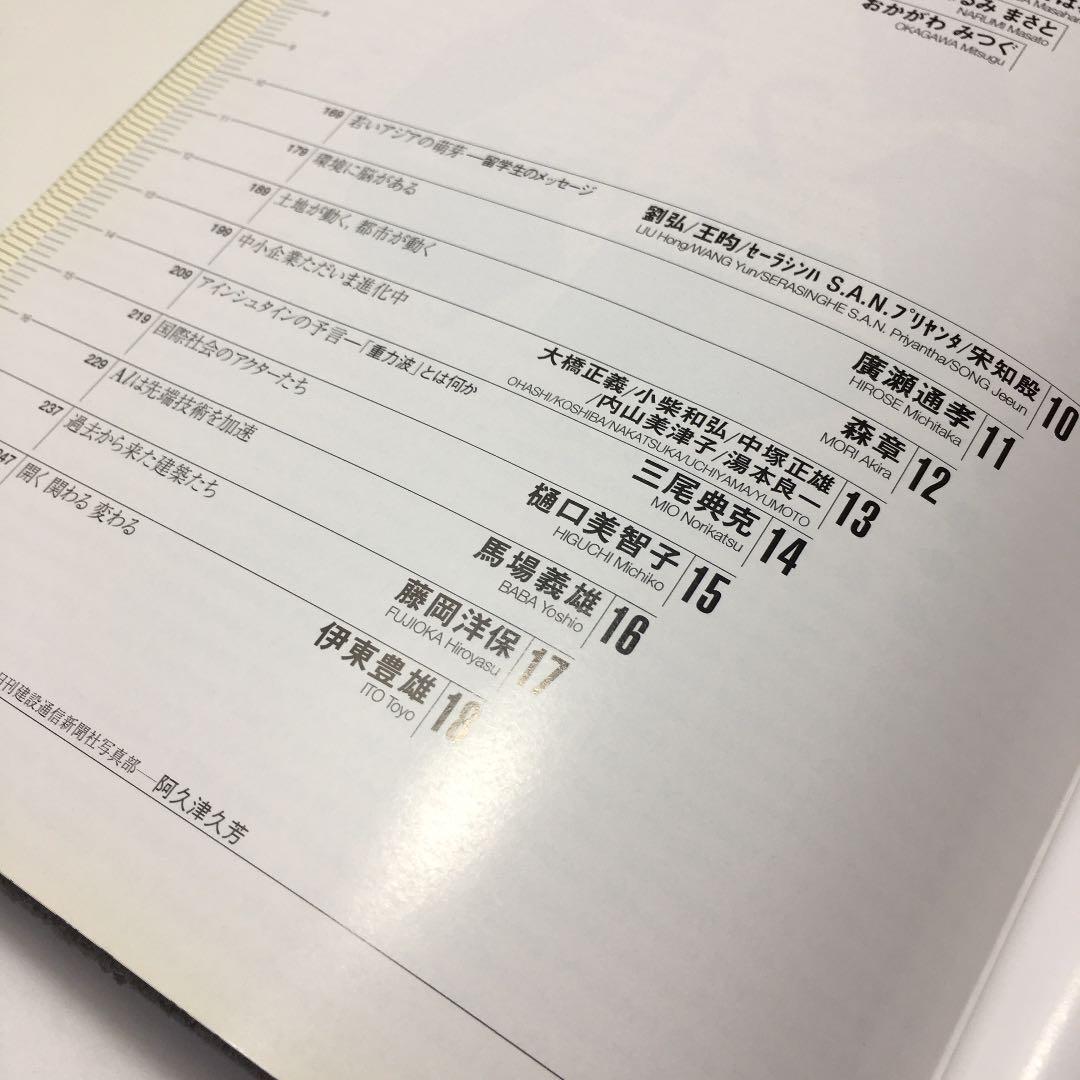 るみ まさと
NARUMI Masato
おかがわ みつぐ
OKAGAWA Mitsugu
8
9
10
169 若いアジアの萌芽―留学生のメッセージ
劉弘/王昀/セーラシンハ S.A.N.プリヤンタ/宋知殷 10
LIU Hong/WANG Yun/SERASINGHE S.A.N. Priyantha/SONG Jeeun
11
179 環境に脳がある
廣瀬通孝 11
HIROSE Michitaka
12
189 土地が動く, 都市が動く
森章 12
MORI Akira
13
199 中小企業ただいま進化中
大橋正義/小柴和弘/中塚正雄
/内山美津子/湯本良一 13
OHASHI/KOSHIBA/NAKATSUKA/UCHIYAMA/YUMOTO
14
209 アインシュタインの予言―「重力波」とは何か
三尾典克 14
MIO Norikatsu
15
219 国際社会のアクターたち
樋口美智子 15
HIGUCHI Michiko
16
229 A.I.は先端技術を加速
馬場義雄 16
BABA Yoshio
237 過去から来た建築たち
藤岡洋保 17
FUJIOKA Hiroyasu
247 開く 関わる 変わる
伊東豊雄 18
ITO Toyo
日刊建設通信新聞社写真部―阿久津久芳